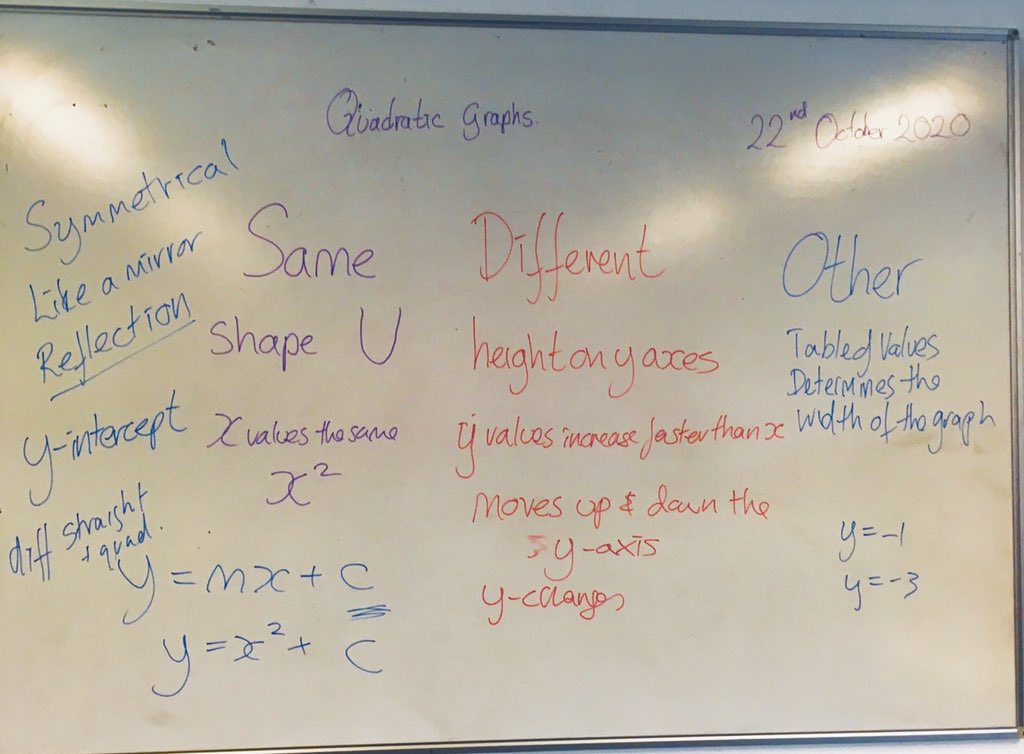 Quadratic Graphs.
22nd October 2020
Symmetrical
Like a mirror
Reflection
y-intercept
diff straight
+ quad.
Same
Shape U
x values the same
x²
y = mx + c
y = x² + c
Different
height on y axes
y values increase faster than x
Moves up & down the
y-axis
y-changes
Other
Table of Values
Determines the
width of the graph
y = -1
y = -3